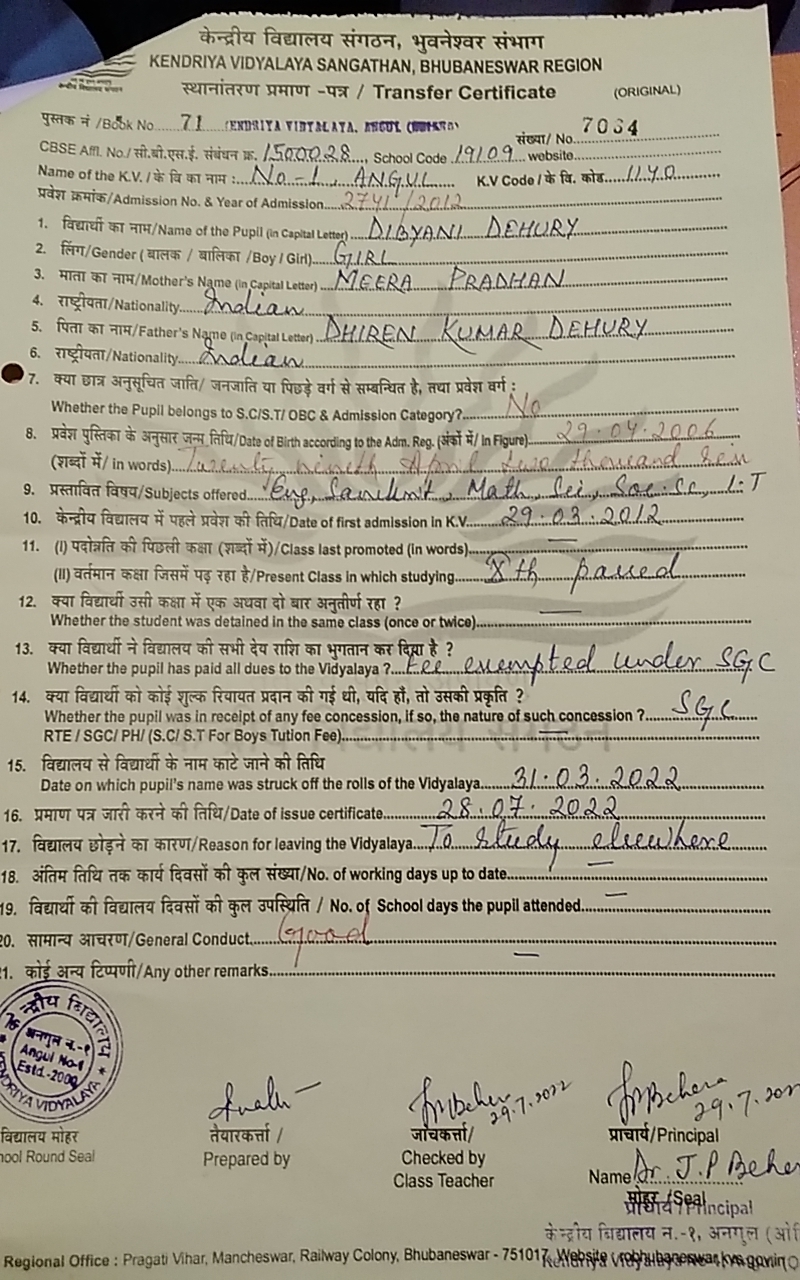 केन्द्रीय विद्यालय संगठन, भुवनेश्वर संभाग
KENDRIYA VIDYALAYA SANGATHAN, BHUBANESWAR REGION
स्थानांतरण प्रमाण -पत्र / Transfer Certificate (ORIGINAL)
पुस्तक नं /Book No 71 KENDRIYA VIDYALAYA, ANGUL संख्या/ No. 7064
CBSE Affl. No./सी.बी.एस.ई. संबंधन क्र. 1500028, School Code 19109 website
Name of the K.V. / के वि का नाम : No-1, ANGUL K.V Code / के वि. कोड 1140
प्रवेश क्रमांक/Admission No. & Year of Admission 2741/2012
1. विद्यार्थी का नाम/Name of the Pupil (in Capital Letter) DIBYANI DEHURY
2. लिंग/Gender ( बालक / बालिका /Boy / Girl) GIRL
3. माता का नाम/Mother's Name (in Capital Letter) MEERA PRADHAN
4. राष्ट्रीयता/Nationality Indian
5. पिता का नाम/Father's Name (in Capital Letter) DHIREN KUMAR DEHURY
6. राष्ट्रीयता/Nationality Indian
7. क्या छात्र अनुसूचित जाति/ जनजाति या पिछड़े वर्ग से सम्बन्धित है, तथा प्रवेश वर्ग :
Whether the Pupil belongs to S.C/S.T/ OBC & Admission Category? No
8. प्रवेश पुस्तिका के अनुसार जन्म तिथि/Date of Birth according to the Adm. Reg. (अंकों में/ In Figure) 29.04.2006
(शब्दों में/ in words) Twenty nineth April two thousand six
9. प्रस्तावित विषय/Subjects offered Eng, Sanskrit, Math, Sci, Soc.Sc, I.T
10. केन्द्रीय विद्यालय में पहले प्रवेश की तिथि/Date of first admission in K.V. 29.03.2012
11. (I) पदोन्नति की पिछली कक्षा (शब्दों में)/Class last promoted (in words) —
(II) वर्तमान कक्षा जिसमें पढ़ रहा है/Present Class in which studying Xth passed
12. क्या विद्यार्थी उसी कक्षा में एक अथवा दो बार अनुतीर्ण रहा ?
Whether the student was detained in the same class (once or twice) —
13. क्या विद्यार्थी ने विद्यालय की सभी देय राशि का भुगतान कर दिया है ?
Whether the pupil has paid all dues to the Vidyalaya ? Fee exempted under SGC
14. क्या विद्यार्थी को कोई शुल्क रियायत प्रदान की गई थी, यदि हाँ, तो उसकी प्रकृति ?
Whether the pupil was in receipt of any fee concession, if so, the nature of such concession ? SGC
RTE / SGC/ PH/ (S.C/ S.T For Boys Tution Fee) —
15. विद्यालय से विद्यार्थी के नाम काटे जाने की तिथि
Date on which pupil's name was struck off the rolls of the Vidyalaya 31.03.2022
16. प्रमाण पत्र जारी करने की तिथि/Date of issue certificate 28.07.2022
17. विद्यालय छोड़ने का कारण/Reason for leaving the Vidyalaya To study elsewhere
18. अंतिम तिथि तक कार्य दिवसों की कुल संख्या/No. of working days up to date —
19. विद्यार्थी की विद्यालय दिवसों की कुल उपस्थिति / No. of School days the pupil attended —
20. सामान्य आचरण/General Conduct Good
21. कोई अन्य टिप्पणी/Any other remarks —
केन्द्रीय विद्यालय
अनगुल न.-१
Angul No-1
Estd.-2000
KENDRIYA VIDYALAYA
JPBehera 29.7.2022
JPBehera 29.7.202
विद्यालय मोहर
ool Round Seal
तैयारकर्त्ता /
Prepared by
जाँचकर्त्ता/
Checked by
Class Teacher
प्राचार्य/Principal
Name Dr. J.P Beher
मोहर /Seal
प्राचार्य/Principal
केन्द्रीय विद्यालय न.-१, अनगुल
Regional Office : Pragati Vihar, Mancheswar, Railway Colony, Bhubaneswar - 751017, Website : robhubaneswar.kvs.gov.in